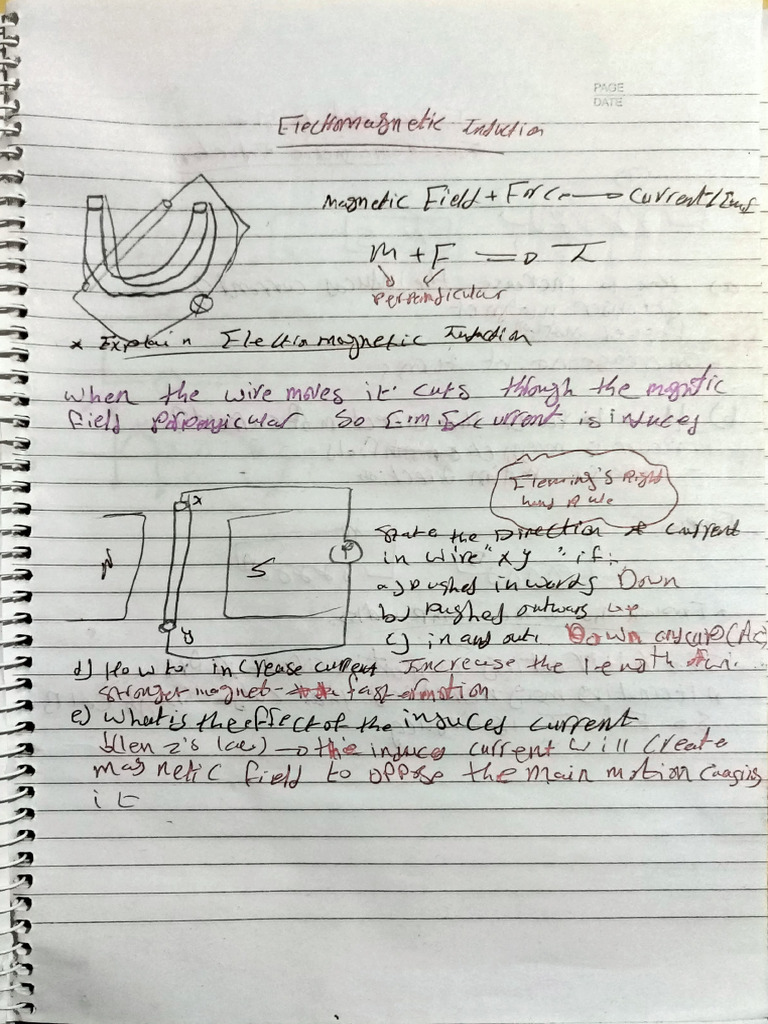 PAGE
DATE
Electromagnetic Induction
Magnetic Field + Force → Current/Emf
M + F ⇒ I
Perpendicular
* Explain Electromagnetic Induction
when the wire moves it cuts through the magntic
field perpendicular so E.m.f/current is induces
Fleming's Right
hand Rule
x
N
S
y
State the Direction of current
in wire "xy" if:
a) pushed inwards Down
b) Pushed outwars up
c) in and out. Down and up (Ac)
d) How to increase current Increase the length of wi
stronger magnet - fast motion
e) what is the effect of the induces current
(len z's law) → the induce current will create
magnetic field to oppose the main motion
it